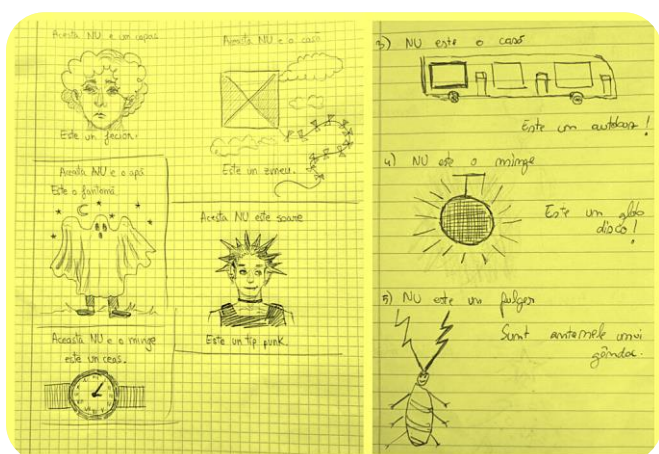 Acesta NU e un copac
Este un fecior.
Aceasta NU e o casă
Este un zmeu.
Aceasta NU e o apă
Este o fantomă
Acesta NU este soare
Este un tip punk.
Aceasta NU e o minge
este un ceas.
3) NU este o casă
Este un autobuz!
4) NU este o minge
Este un glob
disco!
5) NU este un fulger
Sunt antenele unui
gândac.